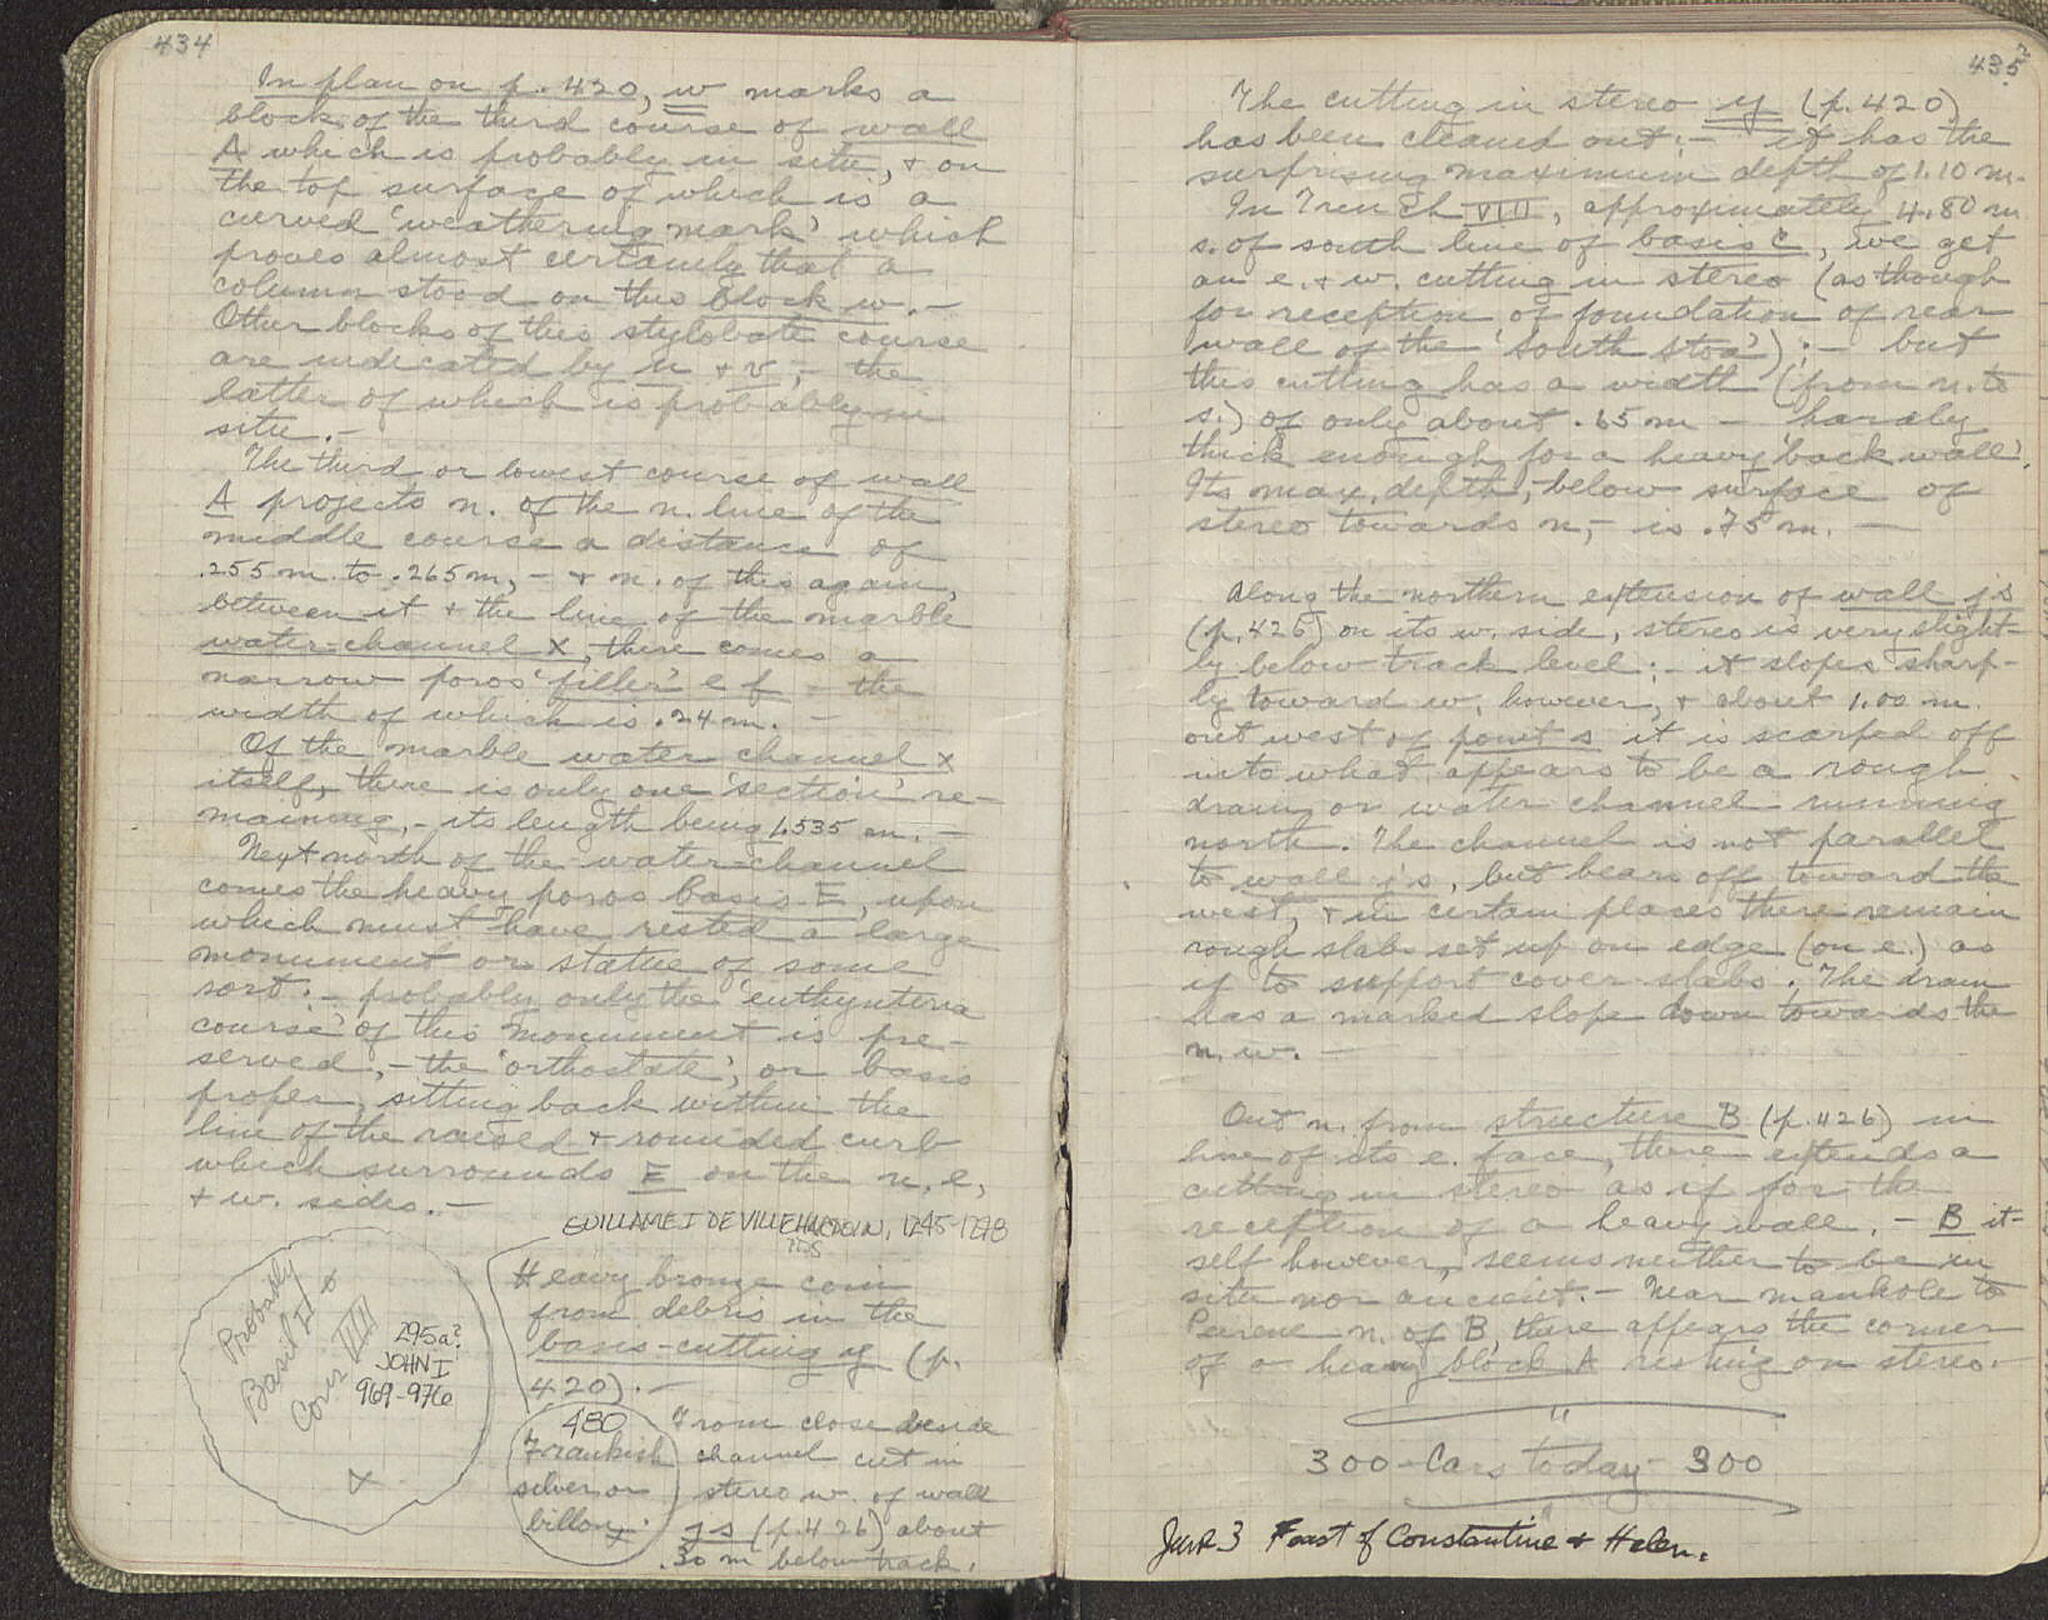 434
In plan on p. 420, w marks a
block of the third course of wall
A which is probably in situ, + on
the top surface of which is a
curved 'weathering mark' which
proves almost certainly that a
column stood on this block w. —
Other blocks of this stylobate course
are indicated by u + v, — the
latter of which is probably in
situ. —
The third or lowest course of wall
A projects n. of the n. line of the
middle course a distance of
.255 m. to .265 m, — + n. of this again,
between it + the line of the marble
water-channel X, there comes a
narrow poros 'filler' e f — the
width of which is .24 m. —
Of the marble water channel X
itself, there is only one 'section' re-
maining, — its length being 1.535 m. —
Next north of the water-channel
comes the heavy poros basis E, upon
which must have rested a large
monument or statue of some
sort: — probably only the 'euthynteria
course' of this monument is pre-
served, — the 'orthostate', or basis
proper, sitting back within the
line of the raised + rounded curb
which surrounds E on the n, e,
+ w. sides. —
GUILLAME I DE VILLEHARDOUIN, 1245-1278
Heavy bronze coin
from debris in the
basis-cutting y (p.
420). —
Probably
Basil II +
Cons VIII
295a?
JOHN I
969-976
480
Frankish
silver or
billon.
From close beside
channel cut in
stereo w. of wall
js (p. 426) about
.30 m below track.
435
The cutting in stereo y (p. 420)
has been cleaned out: — it has the
surprising maximum depth of 1.10 m.
In Trench VIII, approximately 4.80 m
s. of south line of basis C, we get
an e. + w. cutting in stereo (as though
for reception of foundation of rear
wall of the 'South Stoa'); — but
this cutting has a width (from n. to
s.) of only about .65 m — hardly
thick enough for a heavy 'back wall'.
Its max. depth, — below surface of
stereo towards n, — is .75 m. —
Along the northern extension of wall js
(p. 426) on its w. side, stereo is very slight-
ly below track level: — it slopes sharp-
ly toward w, however, + about 1.00 m.
out west of point s it is scarped off
into what appears to be a rough
drain or water channel running
north. The channel is not parallel
to wall js, but bears off toward the
west, + in certain places there remain
rough slabs set up on edge (on e.) as
if to support cover slabs. The drain
has a marked slope down towards the
n. w. —
Out n. from structure B (p. 426) in
line of its e. face, there extends a
cutting in stereo as if for the
reception of a heavy wall. — B it-
self however, seems neither to be in
situ nor ancient. — Near manhole to
Peirene n. of B, there appears the corner
of a heavy block A resting on stereo. —
300 - Cars today - 300
June 3 Feast of Constantine + Helen.